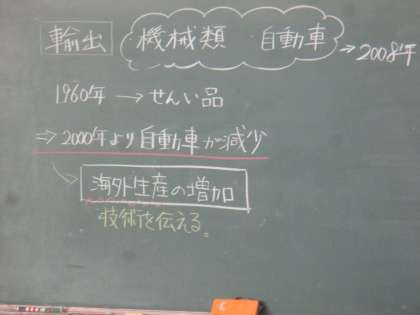 輸出 機械類 自動車 →2008年
1960年 → せんい品
⇒ 2000年より自動車が減少
海外生産の増加
技術を伝える。